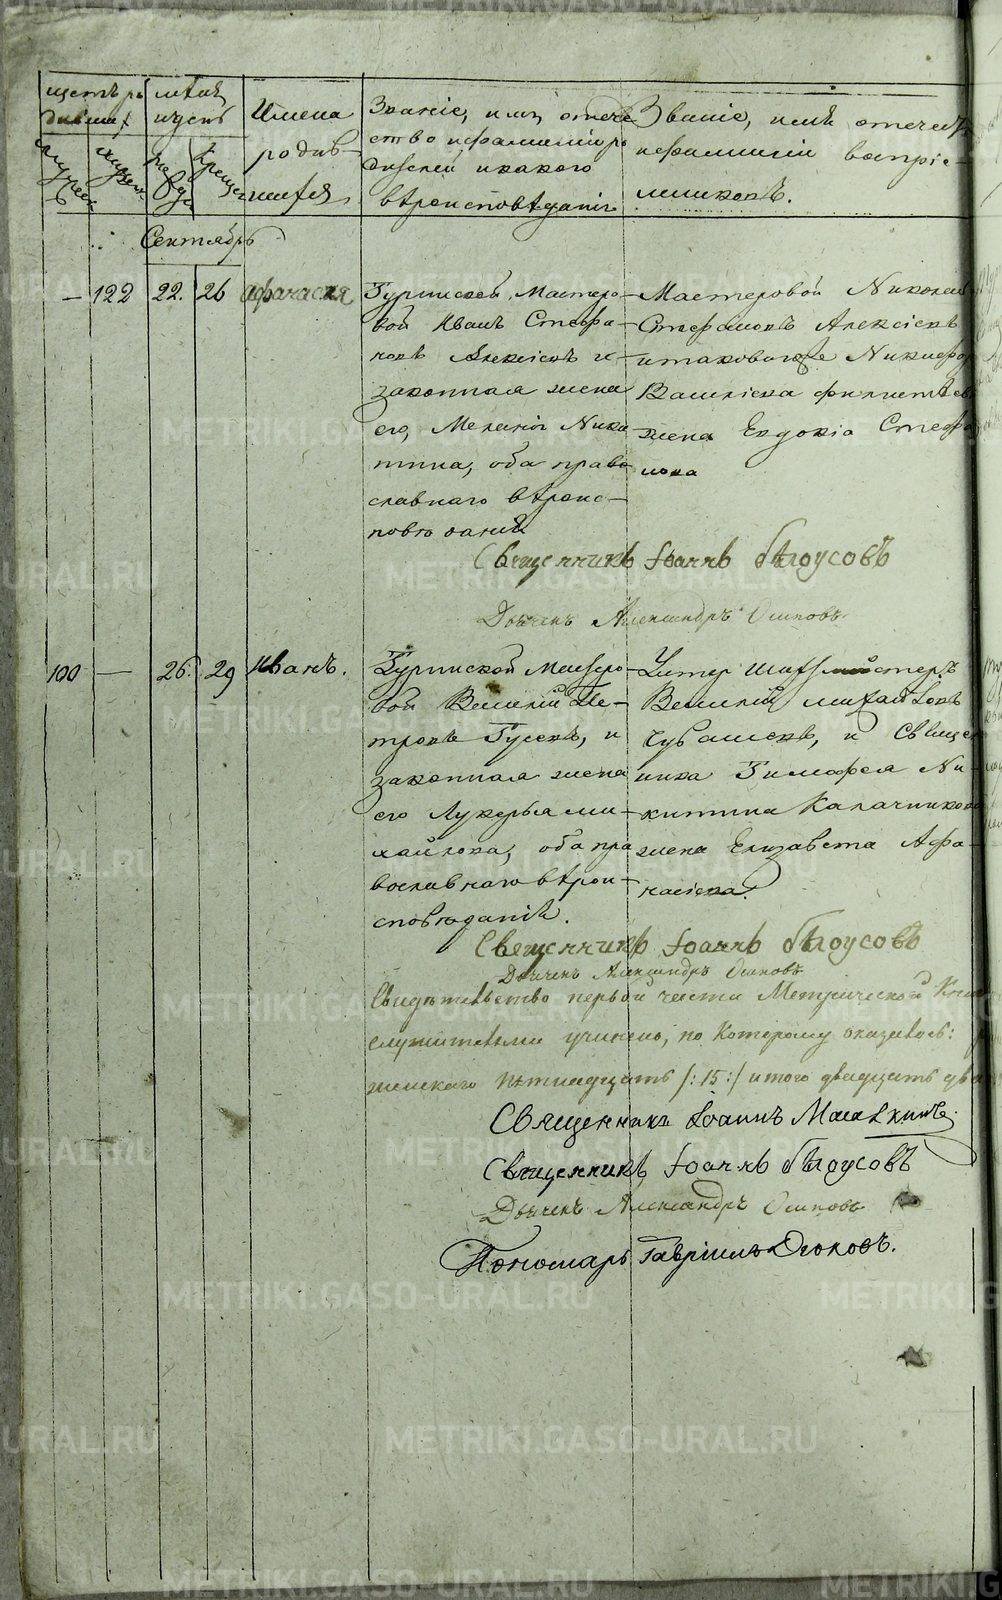 щетъ ро
дившихся
мѣсяцъ
Имена
родив-
шихся
Званіе, имя, отече
ство и фамилія ро
дителей и какого
вѣроисповѣданія
Званіе, имя отечест
и фамилія воспріе-
мниковъ.
Сентябрь
— 122 22. 26 Афанасія
Туринской Мастеро-
вой Иванъ Стефа-
новъ Алексіевъ и
законная жена
его, Меланія Ники
тина, оба право
славнаго вѣроис-
повѣданія
Мастеровой Николай
Стефановъ Алексіевъ
и таковаго же Никифора
Василіева Филипьева
жена Евдокія Стефа
нова
Священникъ Іоаннъ Бѣлоусовъ
Дьяченъ Александръ Осиповъ
100 — 26. 29 Иванъ.
Туринской Мастеро-
вой Василій Пе-
тровъ Гусевъ, и
законная жена
его Лукерья Ми-
хайлова, оба пра
вославнаго вѣрои-
сповѣданія.
Унтер Шихтмейстеръ
Василій Михайловъ
Чубашевъ, и Священ
ника Тимофея Ни-
китина Калачникова
жена Елизавета Афа-
насіева.
Священникъ Іоаннъ Бѣлоусовъ
Дьяченъ Александръ Осиповъ
Свидѣтельство первой части Метрической Книги
служителями учинено, по которому оказалось:
женскаго пѣтнадцать /: 15 :/ итого двадцать два
Священникъ Іоаннъ
Священникъ Іоаннъ Бѣлоусовъ
Дьяченъ Александръ Осиповъ
Пономарь Гавріилъ
METRIKI.GASO-URAL.RU